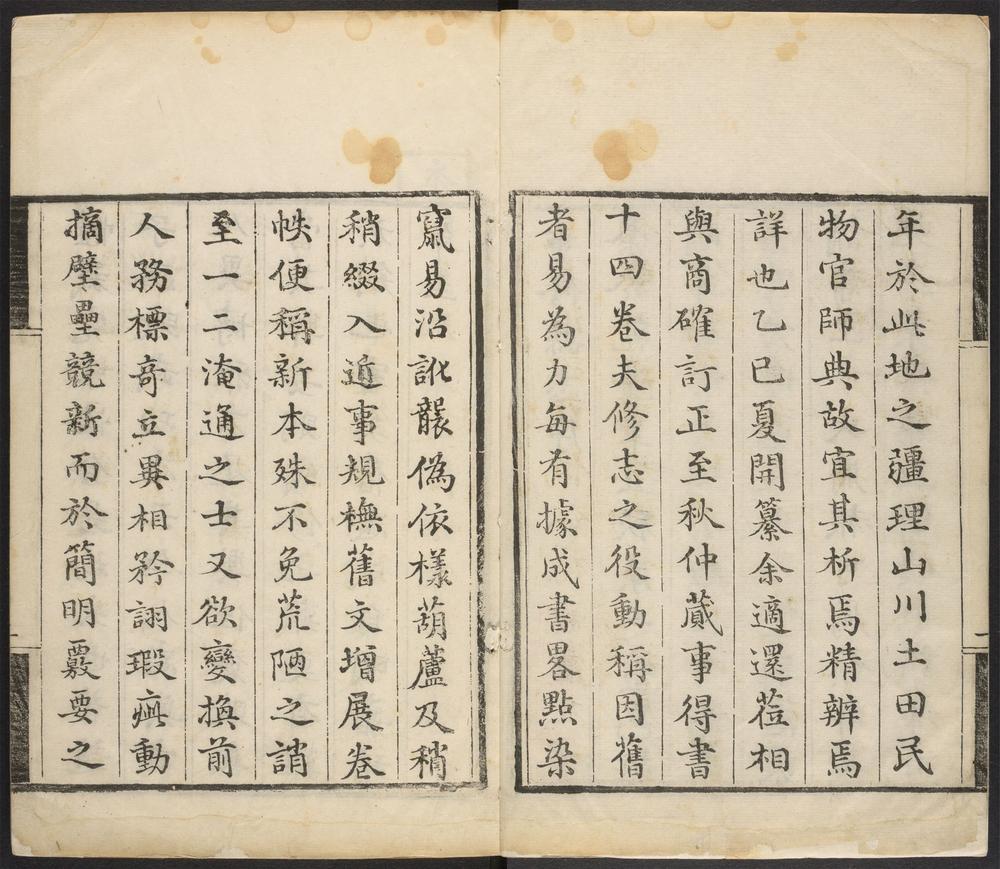 年於此地之疆理山川土田民
物官師典故宜其析焉精辨焉
詳也乙巳夏開纂余適還莅相
與商確訂正至秋仲蕆事得書
十四卷夫修志之役動稱因舊
者易為力每有據成書畧點染
竄易沿訛襲偽依樣葫蘆及稍
稍綴入近事規橅舊文增展卷
帙便稱新本殊不免荒陋之誚
至一二淹通之士又欲變換前
人務標奇立異相矜詡瑕疵動
摘壁壘競新而於簡明覈要之
二